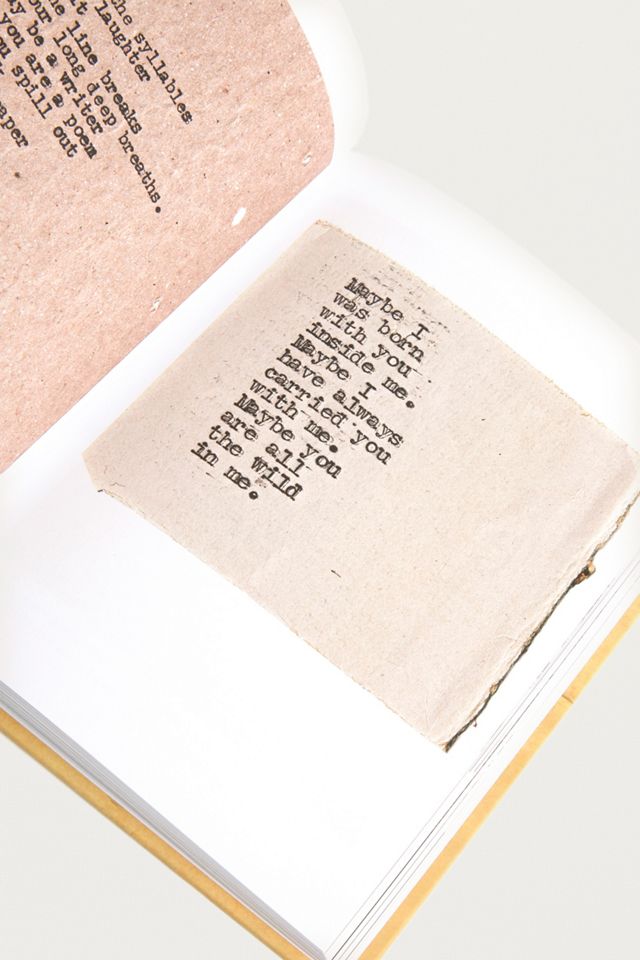 the syllables
laughter
line breaks
long deep breaths.
be a writer
you are a poem
spill out
Maybe I
was born
with you
inside me.
Maybe I
have always
carried you
with me.
Maybe you
are all
the wild
in me.